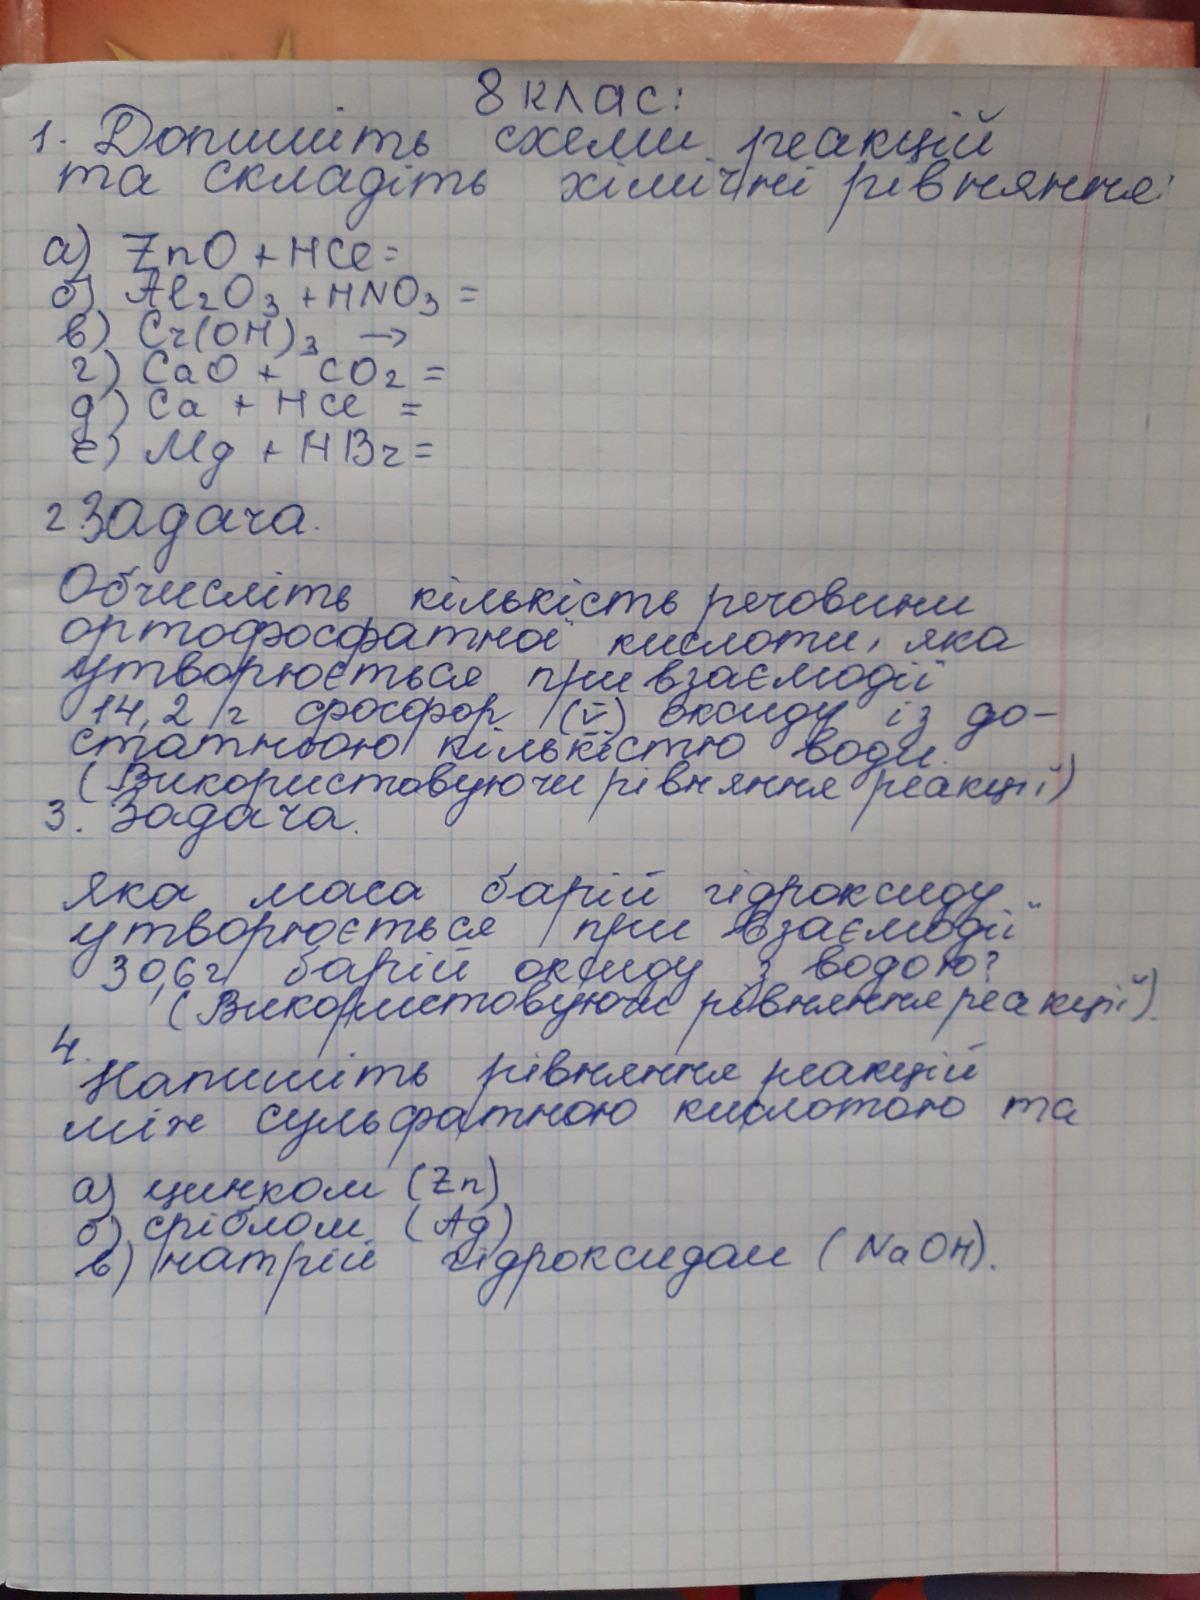 8 клас:
1. Допишіть схеми реакцій
та складіть хімічні рівняння:
а) ZnO + HCl =
б) Al₂O₃ + HNO₃ =
в) Cr(OH)₃ →
г) CaO + CO₂ =
д) Ca + HCl =
е) Mg + HBr =
2 Задача.
Обчисліть кількість речовини
ортофосфатної кислоти, яка
утворюється при взаємодії
14,2 г фосфор (V) оксиду із до-
статньою кількістю води.
(Використовуючи рівняння реакції)
3. Задача.
Яка маса барій гідроксиду
утворюється при взаємодії
30,6г барій оксиду з водою?
(Використовуючи рівняння реакції).
4.
Напишіть рівняння реакцій
між сульфатною кислотою та
а) цинком (Zn)
б) сріблом (Ag)
в) натрій гідроксидом (NaOH).